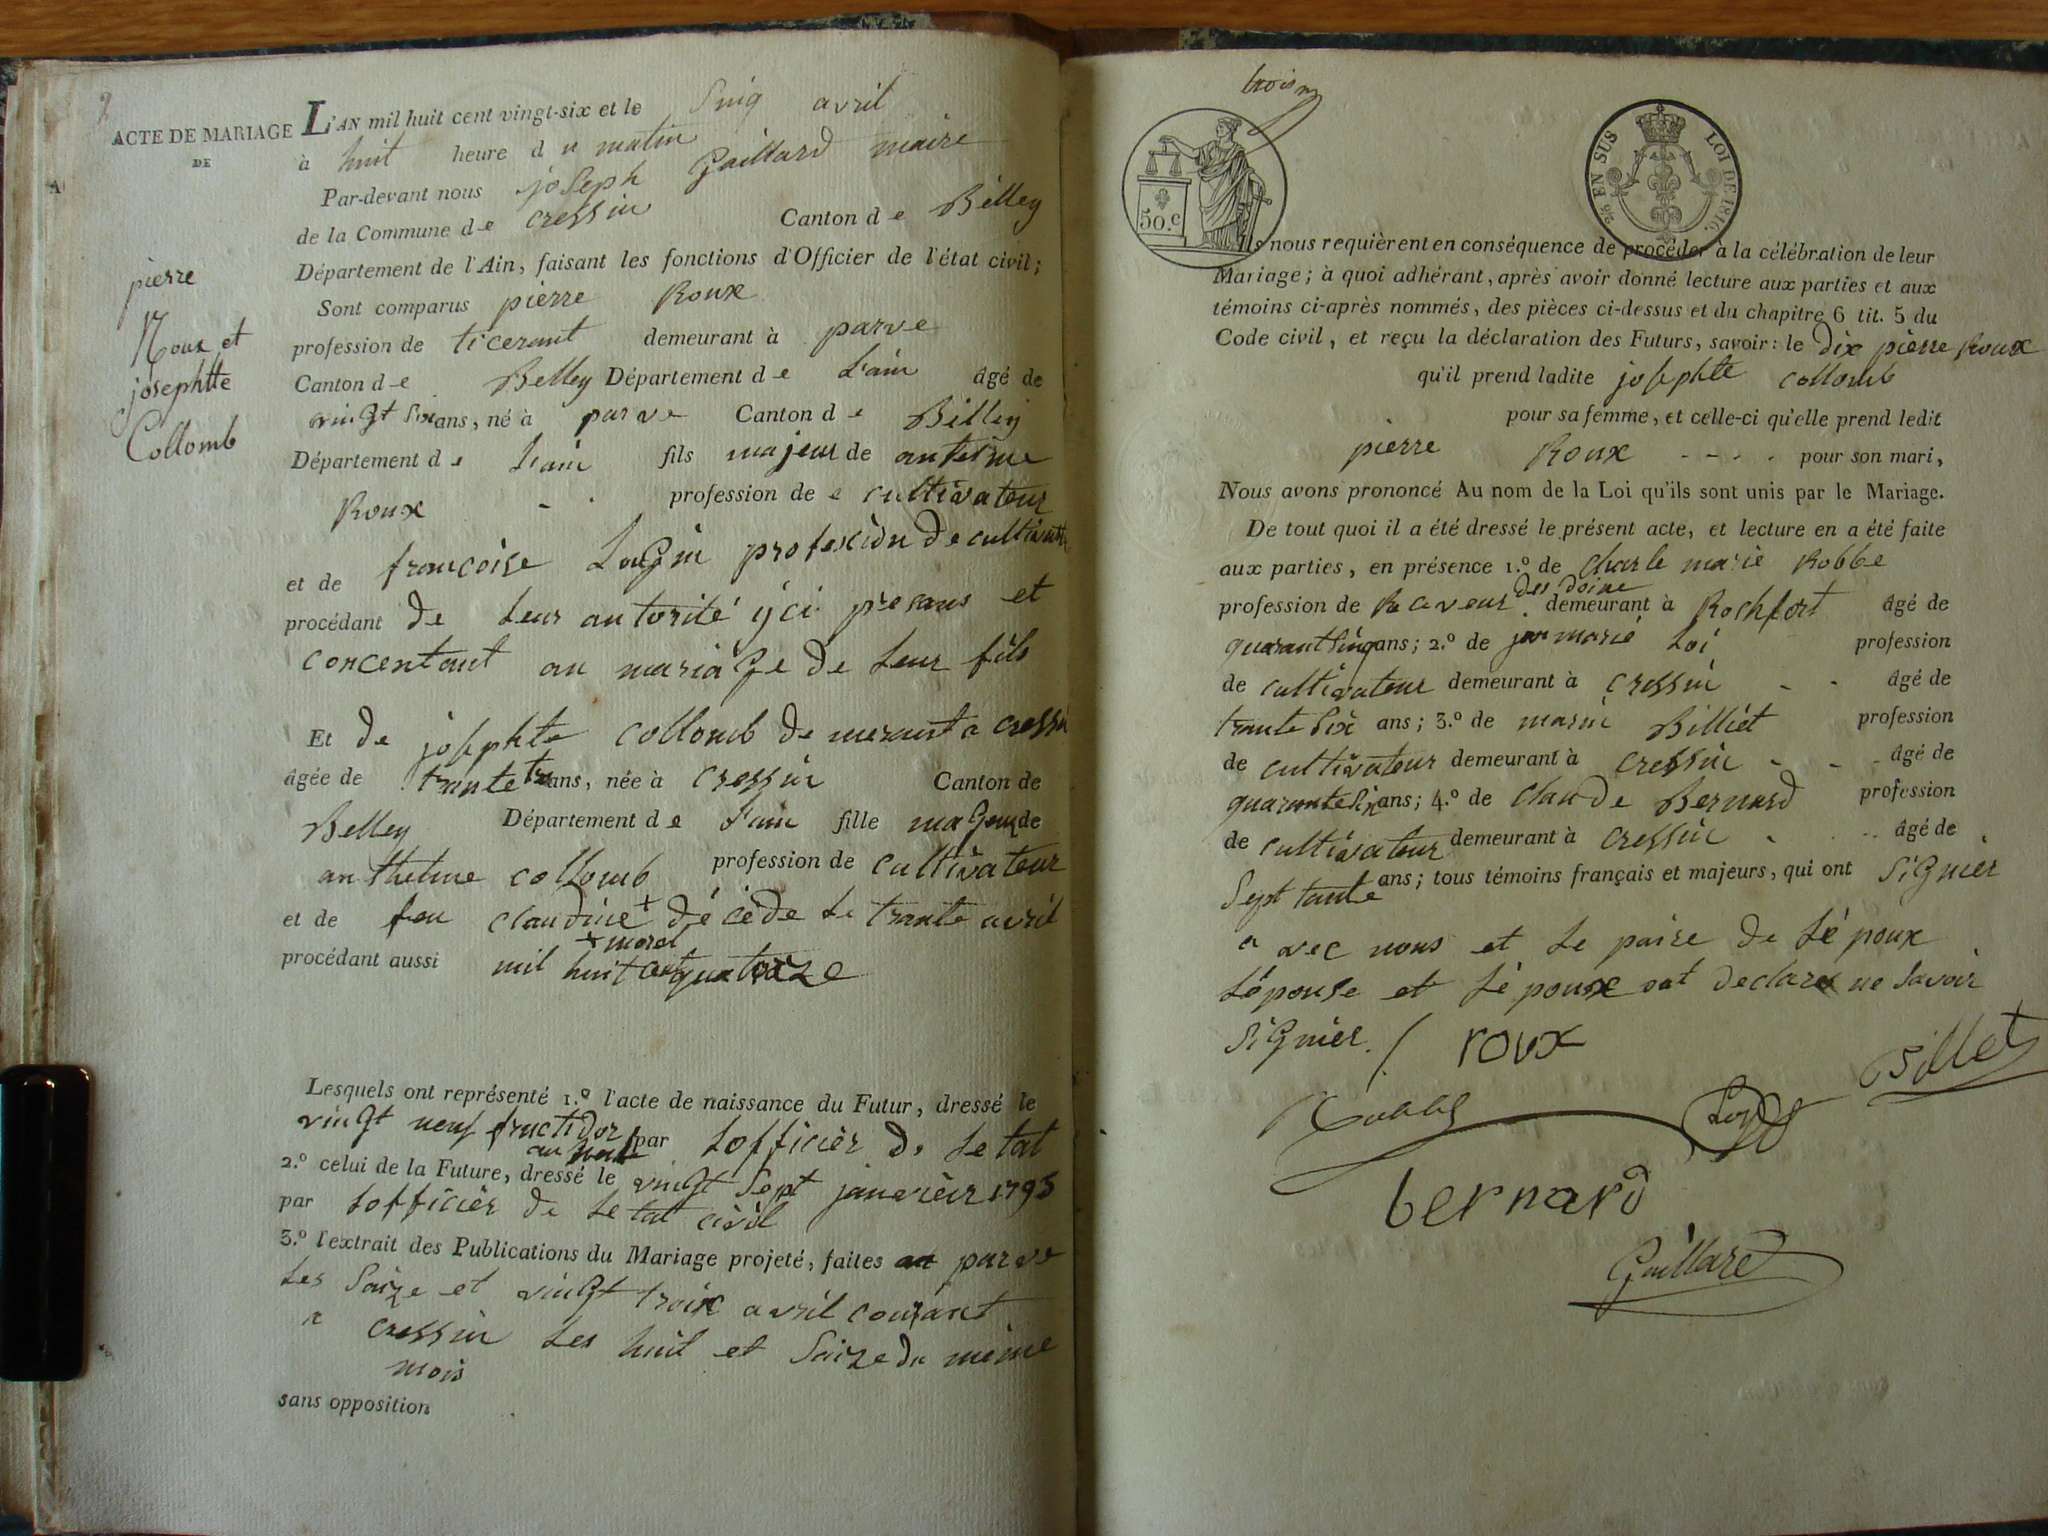 2
ACTE DE MARIAGE
DE
pierre
Roux et
josephtte
Collomb
L'AN mil huit cent vingt-six et le Sinq avril
à huit heure du matin
Par-devant nous joseph Gaillard maire
de la Commune de cressin Canton de Belley
Département de l'Ain, faisant les fonctions d'Officier de l'état civil;
Sont comparus pierre Roux
profession de ticerant demeurant à parve
Canton de Belley Département de L'ain âgé de
vingt six ans, né à parve Canton de Belley
Département de L'ain fils majeur de antelme
Roux - . profession de cultivateur
et de francoise Lougin profescion de cultivatt
procédant de Leur autorité yci presans et
concentant au mariage de Leur fils
Et de josephte collomb de merant a cressin
âgée de trante tr ans, née à cressin Canton de
Belley Département de L'ain fille mageur de
anthelme collomb profession de cultivateur
et de feu claudine + décède Le trante avril
+ morel
procédant aussi mil huit cent quatorze
Lesquels ont représenté 1.º l'acte de naissance du Futur, dressé le
vingt neuf fructidor par Lofficier de Letat
2.º celui de la Future, dressé le vingt Sept janvièir 1793
par Lofficièr de Letat civil
3.º l'extrait des Publications du Mariage projeté, faites parve
Les Saize et vingt troix avril courant
a cressin Les huit et Saize du même
mois
sans opposition
trois
50.c
EN SUS LOI DE 1816.
Ils nous requièrent en conséquence de procéder à la célébration de leur
Mariage; à quoi adhérant, après avoir donné lecture aux parties et aux
témoins ci-après nommés, des pièces ci-dessus et du chapitre 6 tit. 5 du
Code civil, et reçu la déclaration des Futurs, savoir: le dix pierre Roux
qu'il prend ladite josephte collomb
pour sa femme, et celle-ci qu'elle prend ledit
pierre Roux - - . . pour son mari,
Nous avons prononcé Au nom de la Loi qu'ils sont unis par le Mariage.
De tout quoi il a été dressé le présent acte, et lecture en a été faite
aux parties, en présence 1.º de Charle marie Robbe
des doine
profession de Raceveur demeurant à Rochfort âgé de
quarant Sinq ans; 2.º de jan marie Loi profession
de cultivateur demeurant à cressin - - âgé de
trante Six ans; 3.º de marin Billiet profession
de cultivateur demeurant à cressin - - - âgé de
quarante Six ans; 4.º de claude Bernard profession
de cultivateur demeurant à cressin . . . âgé de
Sept tante ans; tous témoins français et majeurs, qui ont Signier
avec nous et Le paire de Lé poux
Lépouse et Lé poux ont declare ne Savoir
Signier. / roux
Billet
Robbe
Loy
bernard
Gaillard